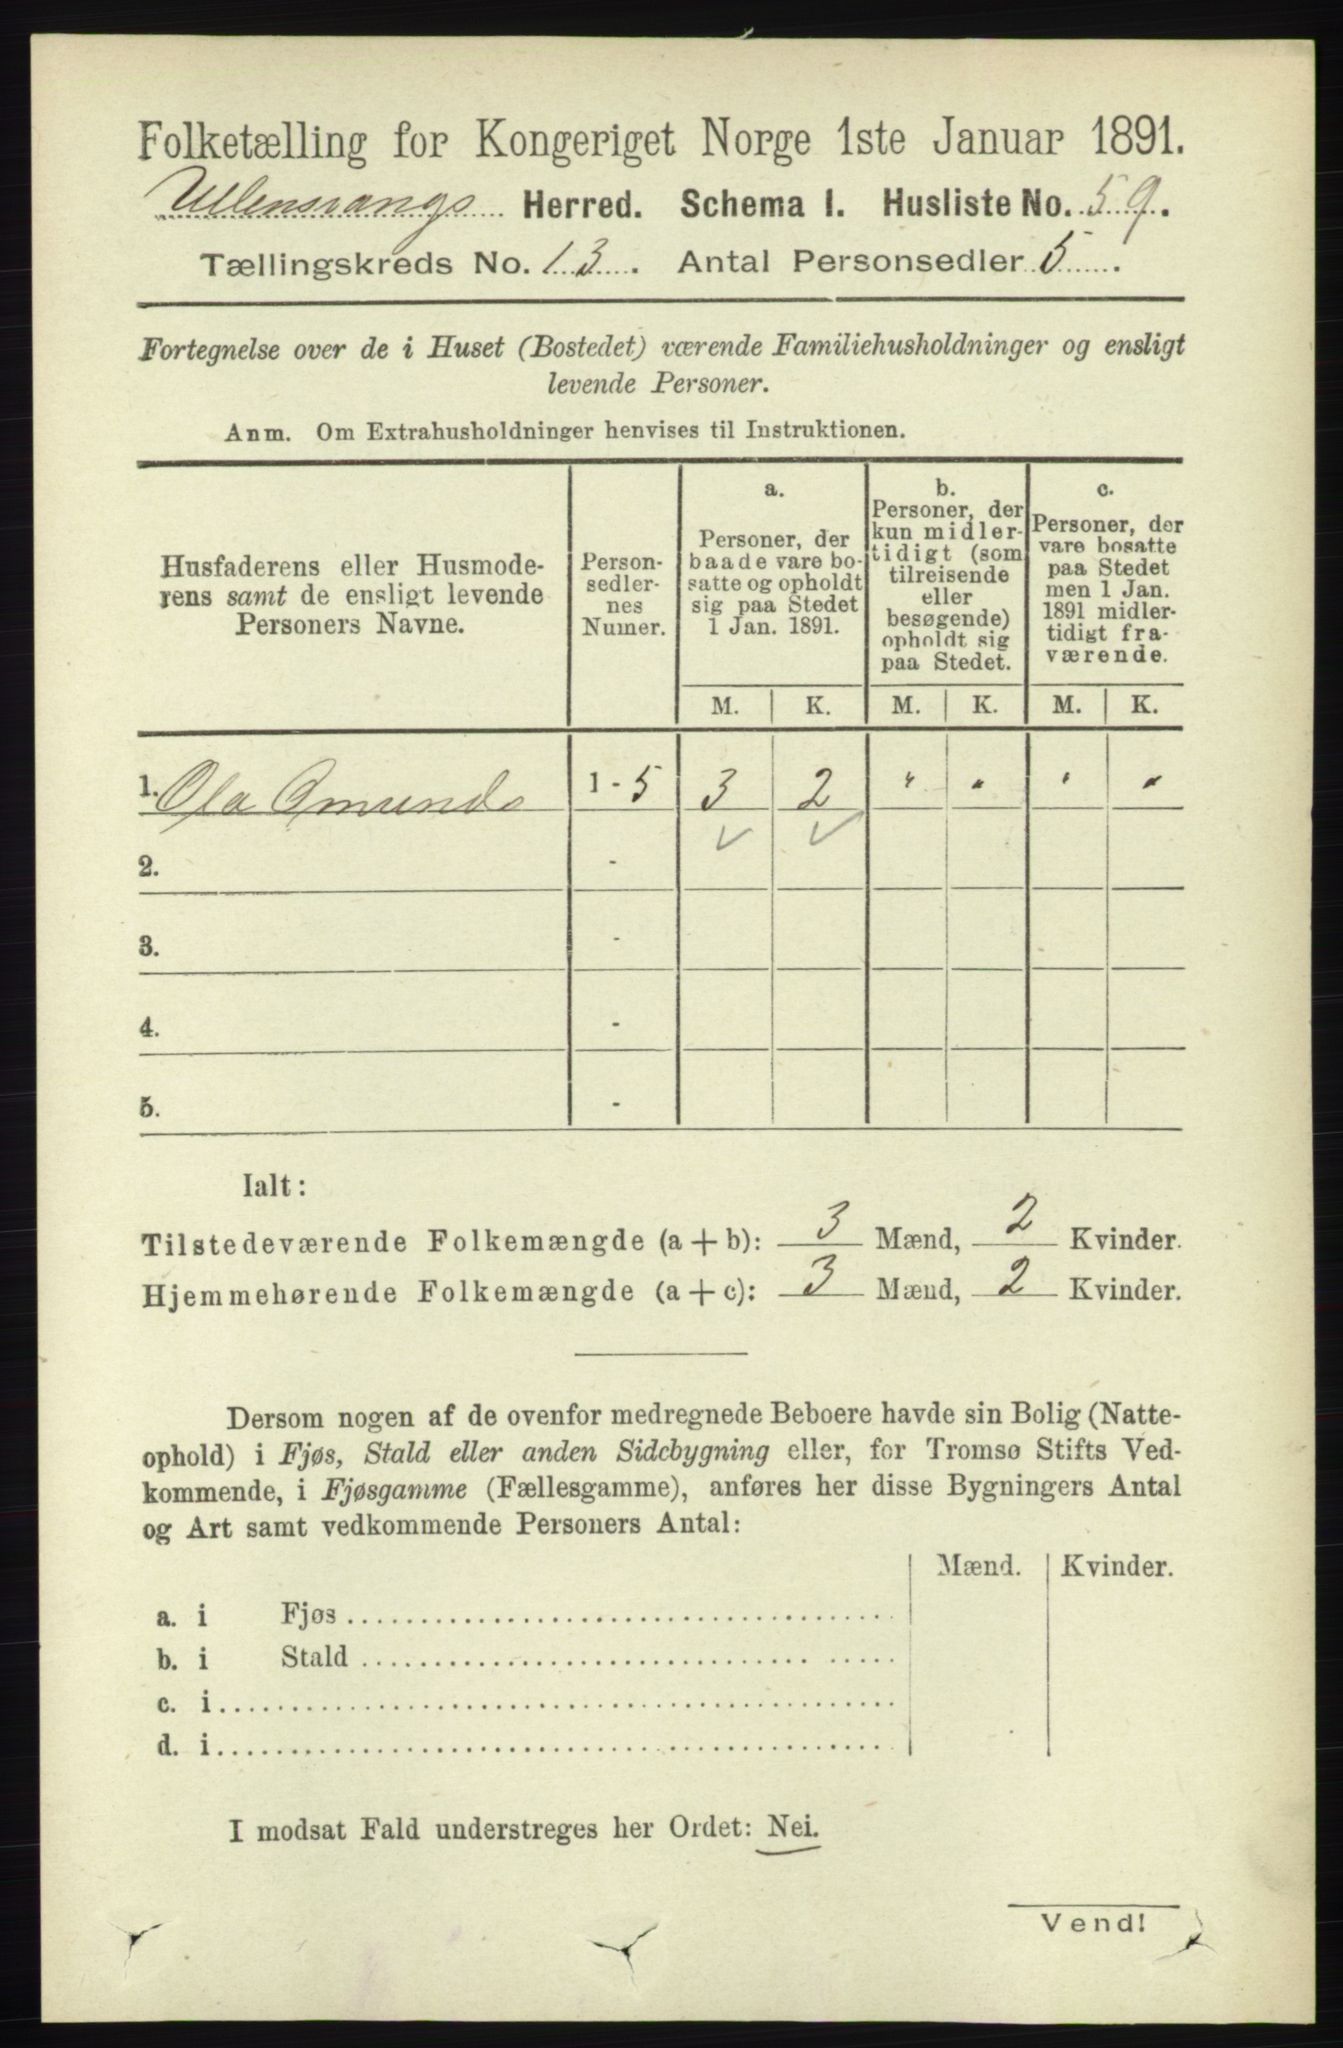 Folketælling for Kongeriget Norge 1ste Januar 1891.
Ullensvangs Herred. Schema I. Husliste No. 59.
Tællingskreds No. 13. Antal Personsedler 5.
Fortegnelse over de i Huset (Bostedet) værende Familiehusholdninger og ensligt
levende Personer.
Anm. Om Extrahusholdninger henvises til Instruktionen.
Husfaderens eller Husmode-
rens samt de ensligt levende
Personers Navne.
Person-
sedler-
nes
Numer.
a.
Personer, der
baade vare bo-
satte og opholdt
sig paa Stedet
1 Jan. 1891.
b.
Personer, der
kun midler-
tidigt (som
tilreisende
eller
besøgende)
opholdt sig
paa Stedet.
c.
Personer, der
vare bosatte
paa Stedet
men 1 Jan.
1891 midler-
tidigt fra-
værende.
M. K. M. K. M. K.
1. Ola Omunds 1-5 3 2 " " " "
2. -
3. -
4. -
5. -
Ialt:
Tilstedeværende Folkemængde (a+b): 3 Mænd, 2 Kvinder.
Hjemmehørende Folkemængde (a+c): 3 Mænd, 2 Kvinder.
Dersom nogen af de ovenfor medregnede Beboere havde sin Bolig (Natte-
ophold) i Fjøs, Stald eller anden Sidebygning eller, for Tromsø Stifts Ved-
kommende, i Fjøsgamme (Fællesgamme), anføres her disse Bygningers Antal
og Art samt vedkommende Personers Antal:
Mænd. Kvinder.
a. i Fjøs
b. i Stald
c. i
d. i
I modsat Fald understreges her Ordet: Nei.
Vend!